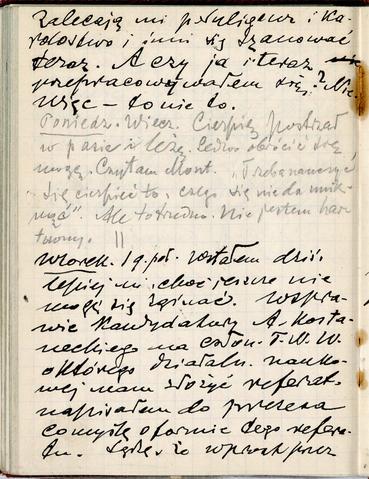 Zalecają mi
i inni się szanować
teraz. A czy ja i teraz
przepracowywałem się? Nie.
Więc – to nie to.
Poniedz. Wiecz. Cierpię postrzał
w pasie i leżę. Ledwo obrócić się
mogę. Czytam Mont. „Trzeba nauczyć
się cierpieć to, czego się nie da unik-
nąć”. Ale to trudno. Nie jestem har-
towny.
Wtorek. 19. Wstałem dziś.
Lepiej mi, choć jeszcze nie
mogę się zginać. W spra-
wie kandydatury A. Kosta-
neckiego na człon. T. W. W.
o którego działaln. nauko-
wej mam złożyć referat
napisałem do prezesa
co myślę o formie tego refera-
tu. Sądzę, że wprost przez